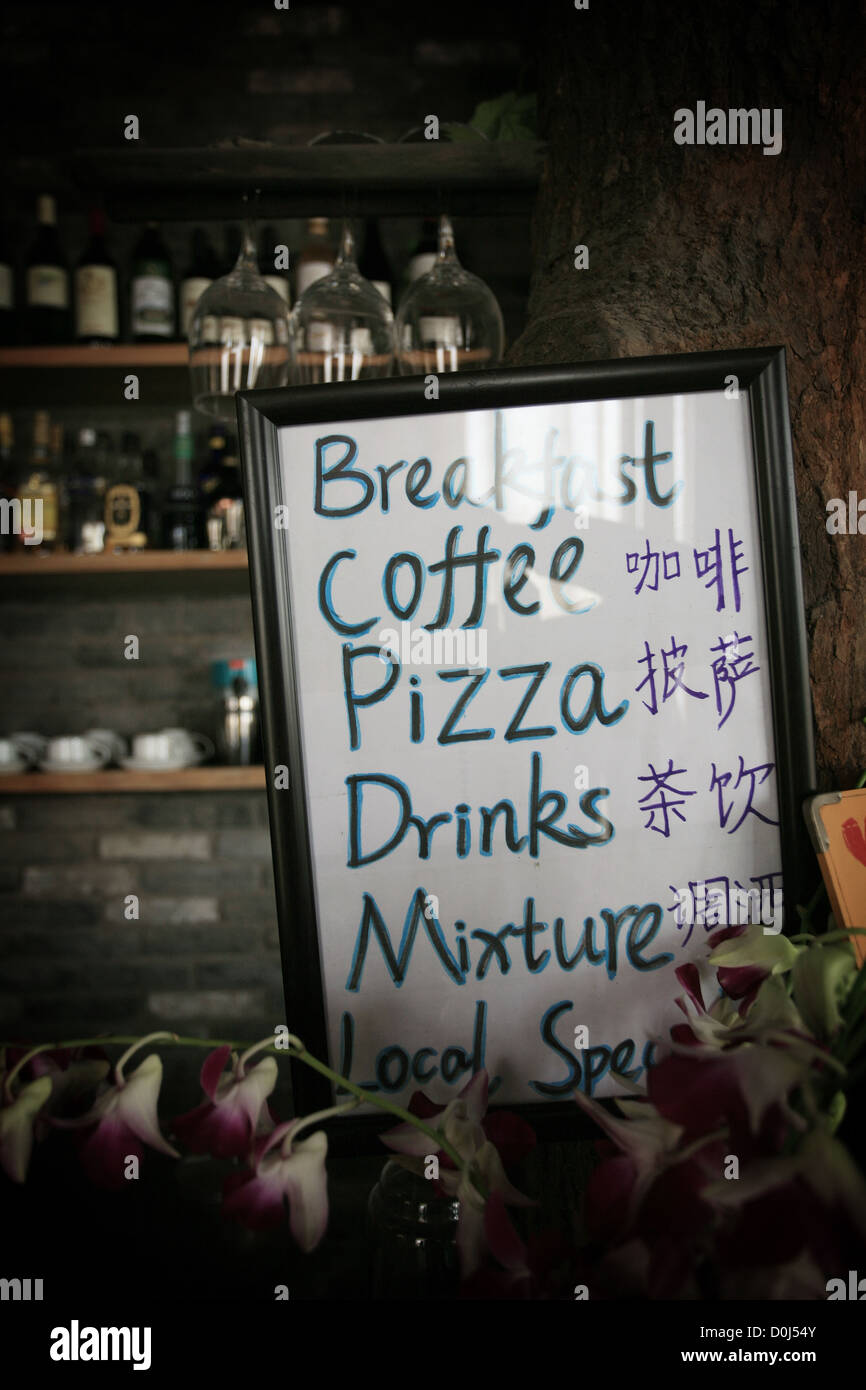 Breakfast
Coffee 咖啡
Pizza 披萨
Drinks 茶饮
Mixture 调酒
Local Spec
alamy
Image ID: D0J54Y
www.alamy.com